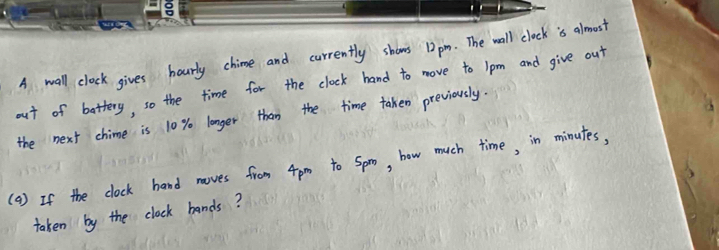 A wall clock gives hourly chime and currently shows 12 pm. The wall clock is almost
out of battery, so the time for the clock hand to move to 1pm and give out
the next chime is 10% longer than the time taken previously.
(a) If the clock hand moves from 4pm to 5pm, how much time, in minutes,
taken by the clock hands?